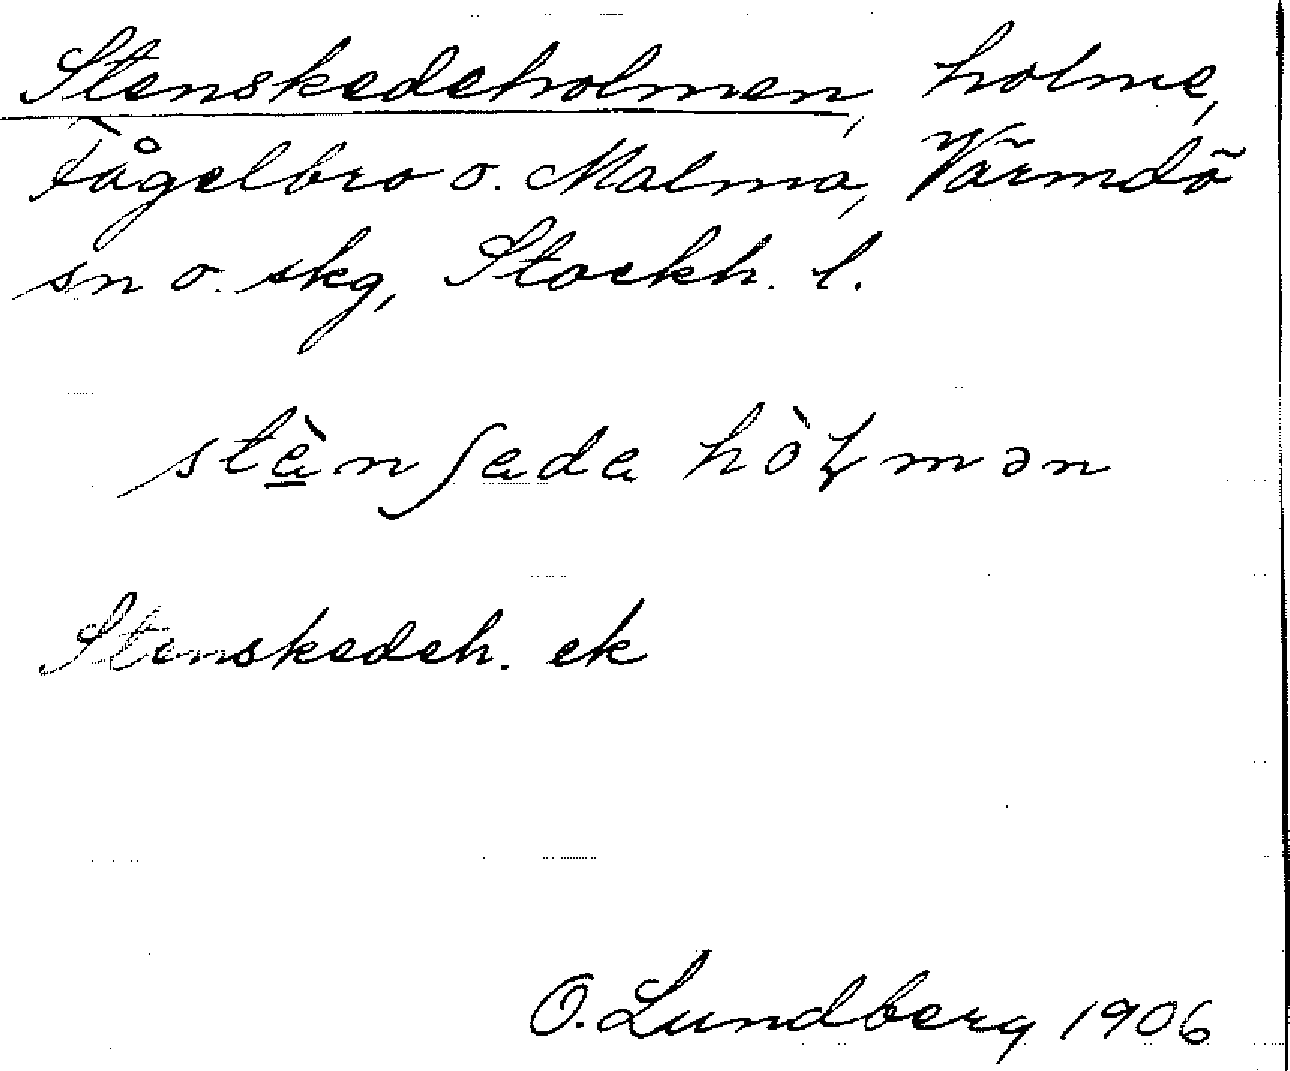 Stenskedeholmen, holme,
Fågelbro o. Malma, Värmdö
sn o. skg, Stockh. l.
stènʃede hòɽmən
Stenskedeh. ek
O. Lundberg 1906